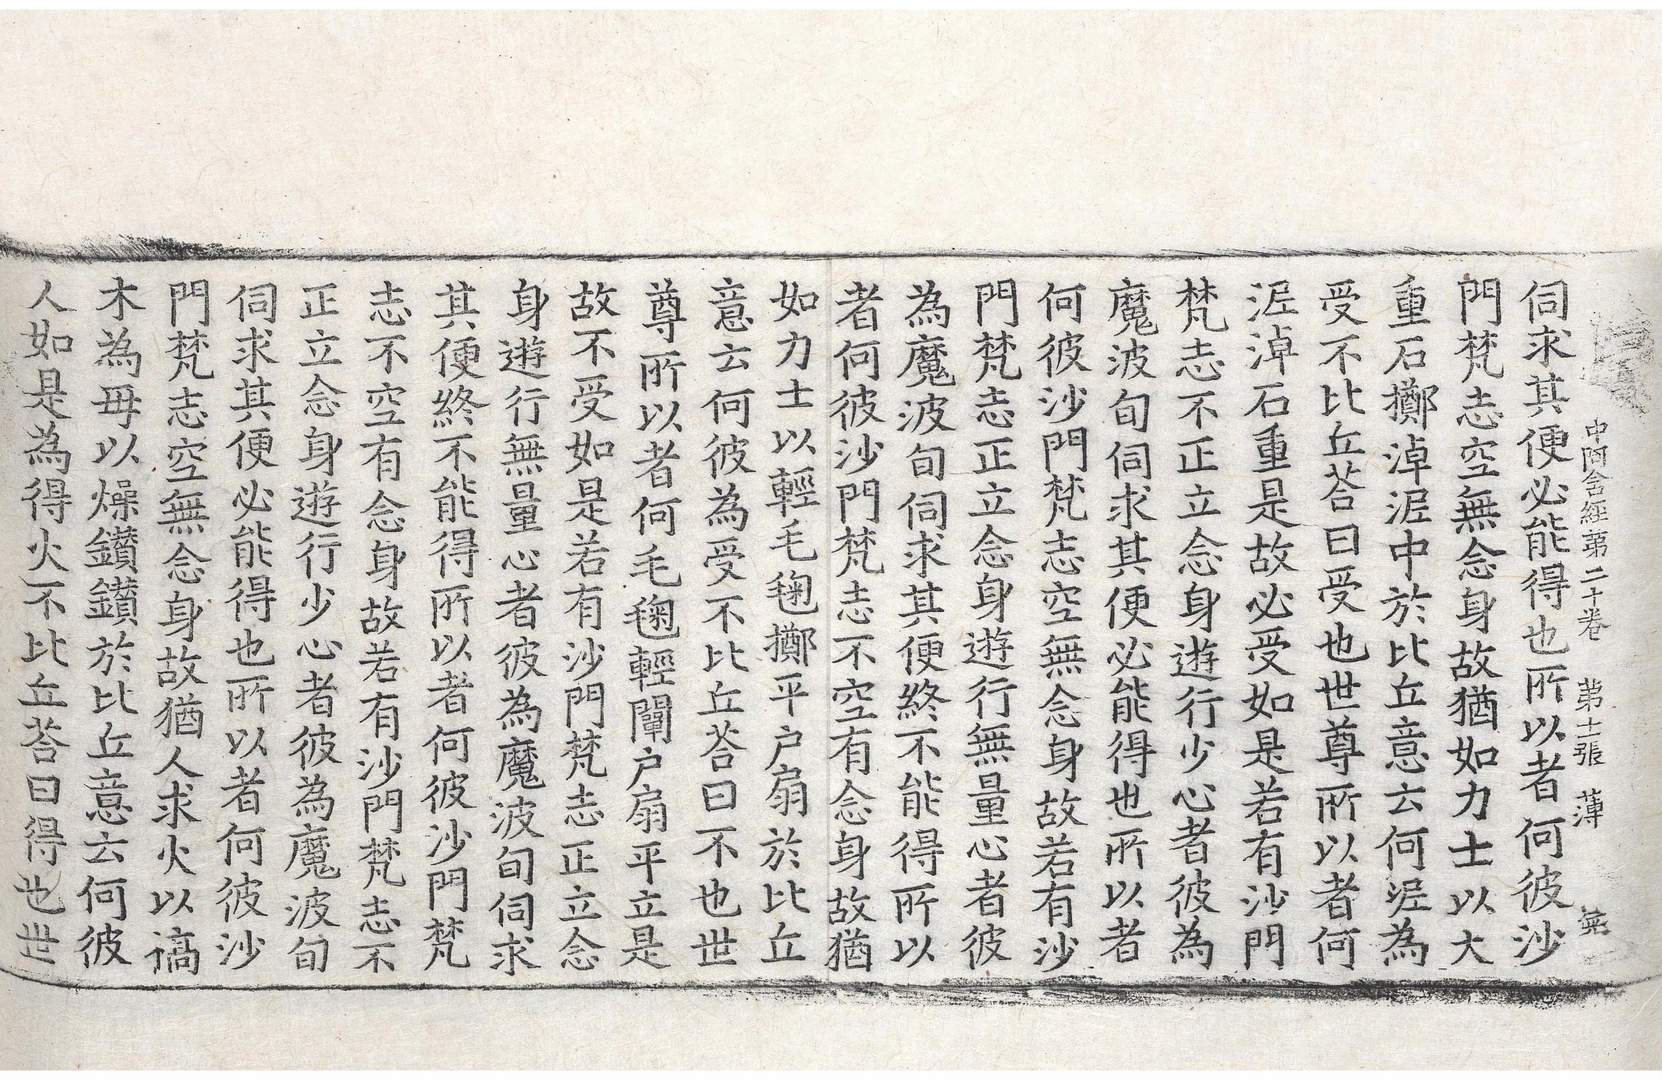 中阿含經第二十卷　第十二張　薄
伺求其便必能得也所以者何彼沙
門梵志空無念身故猶如力士以大
重石擲淖泥中於比丘意云何泥為
受不比丘荅曰受也世尊所以者何
泥淖石重是故必受如是若有沙門
梵志不正立念身遊行少心者彼為
魔波旬伺求其便必能得也所以者
何彼沙門梵志空無念身故若有沙
門梵志正立念身遊行無量心者彼
為魔波旬伺求其便終不能得所以
者何彼沙門梵志不空有念身故猶
如力士以輕毛毱擲平户扇於比丘
意云何彼為受不比丘荅曰不也世
尊所以者何毛毱輕闡户扇平立是
故不受如是若有沙門梵志正立念
身遊行無量心者彼為魔波旬伺求
其便終不能得所以者何彼沙門梵
志不空有念身故若有沙門梵志不
正立念身遊行少心者彼為魔波旬
伺求其便必能得也所以者何彼沙
門梵志空無念身故猶人求火以槁
木為母以燥鑽鑽於比丘意云何彼
人如是為得火不比丘荅曰得也世